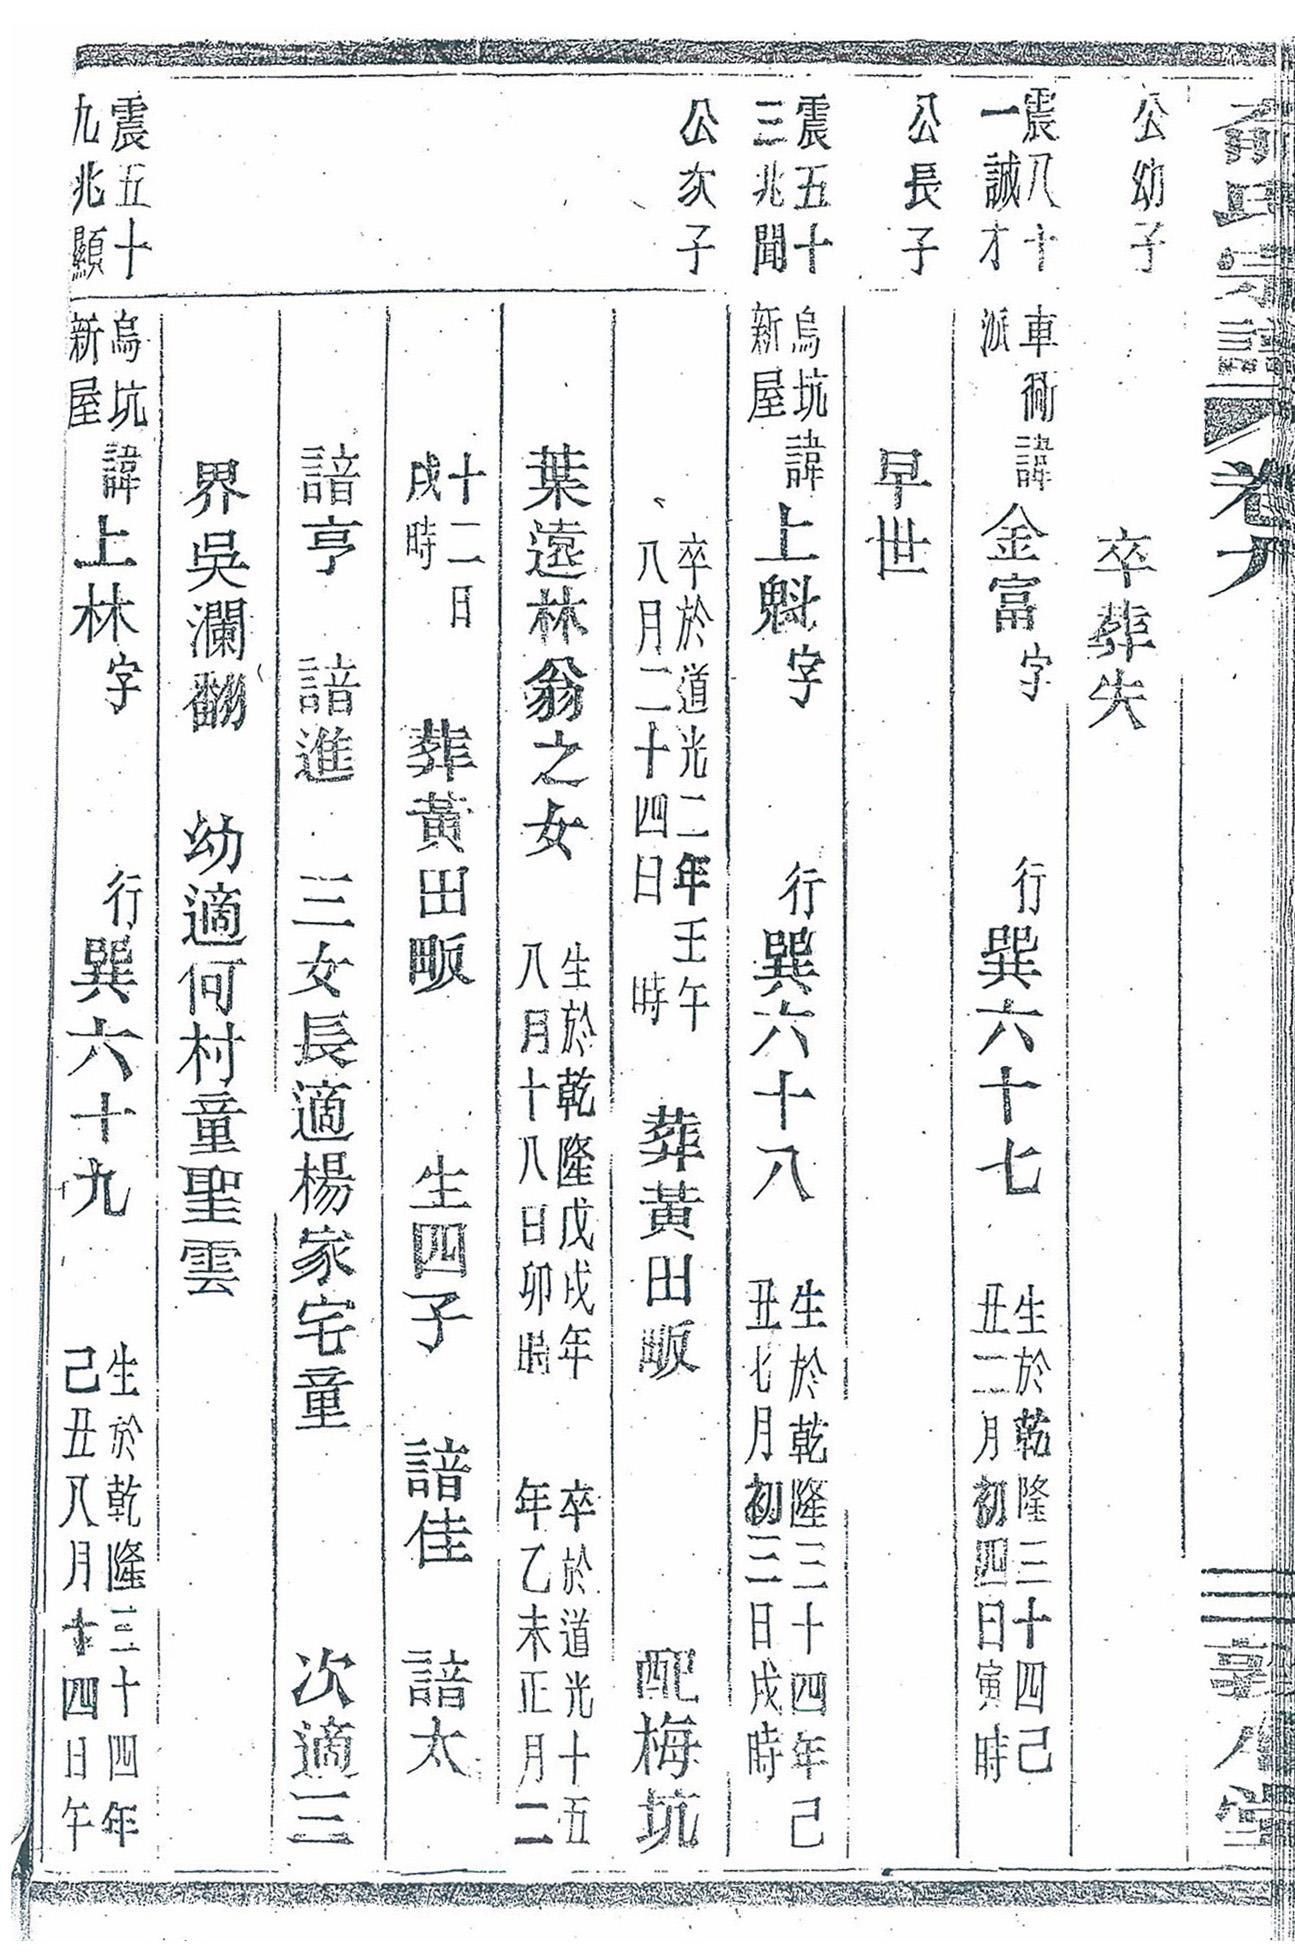 俞氏宗譜
卷六
敦倫堂
公幼子
卒葬失
震八十
一誠才
車衕
派
諱金富字
行巽六十七
生於乾隆三十四己
丑二月初四日寅時
公長子
早世
震五十
三兆聞
烏坑
新屋
諱上魁字
行巽六十八
生於乾隆三十四年己
丑七月初三日戌時
公次子
卒於道光二年壬午
八月二十四日 時
葬黃田畈
配梅坑
葉遠林翁之女
生於乾隆戊戌年
八月十八日卯時
卒於道光十五
年乙未正月二
十二日
戌時
葬黃田畈 生四子 諳佳 諳太
諳亨 諳進 三女長適楊家宅童 次適三
界吳瀾翻 幼適何村童聖雲
震五十
九兆顯
烏坑
新屋
諱上林字
行巽六十九
生於乾隆三十四年
己丑八月十四日午